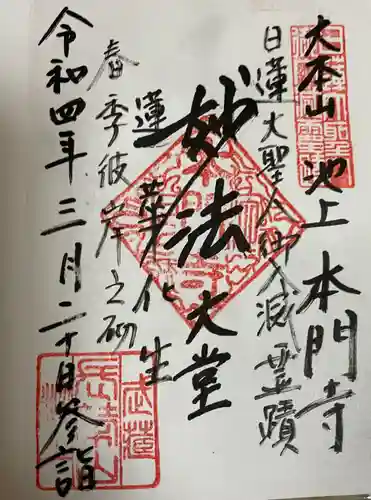 大本山 池上 本門寺
日蓮大聖人御入滅霊蹟
妙法
大堂
蓮華化生
春季彼岸之砌
令和四年三月二十日参詣